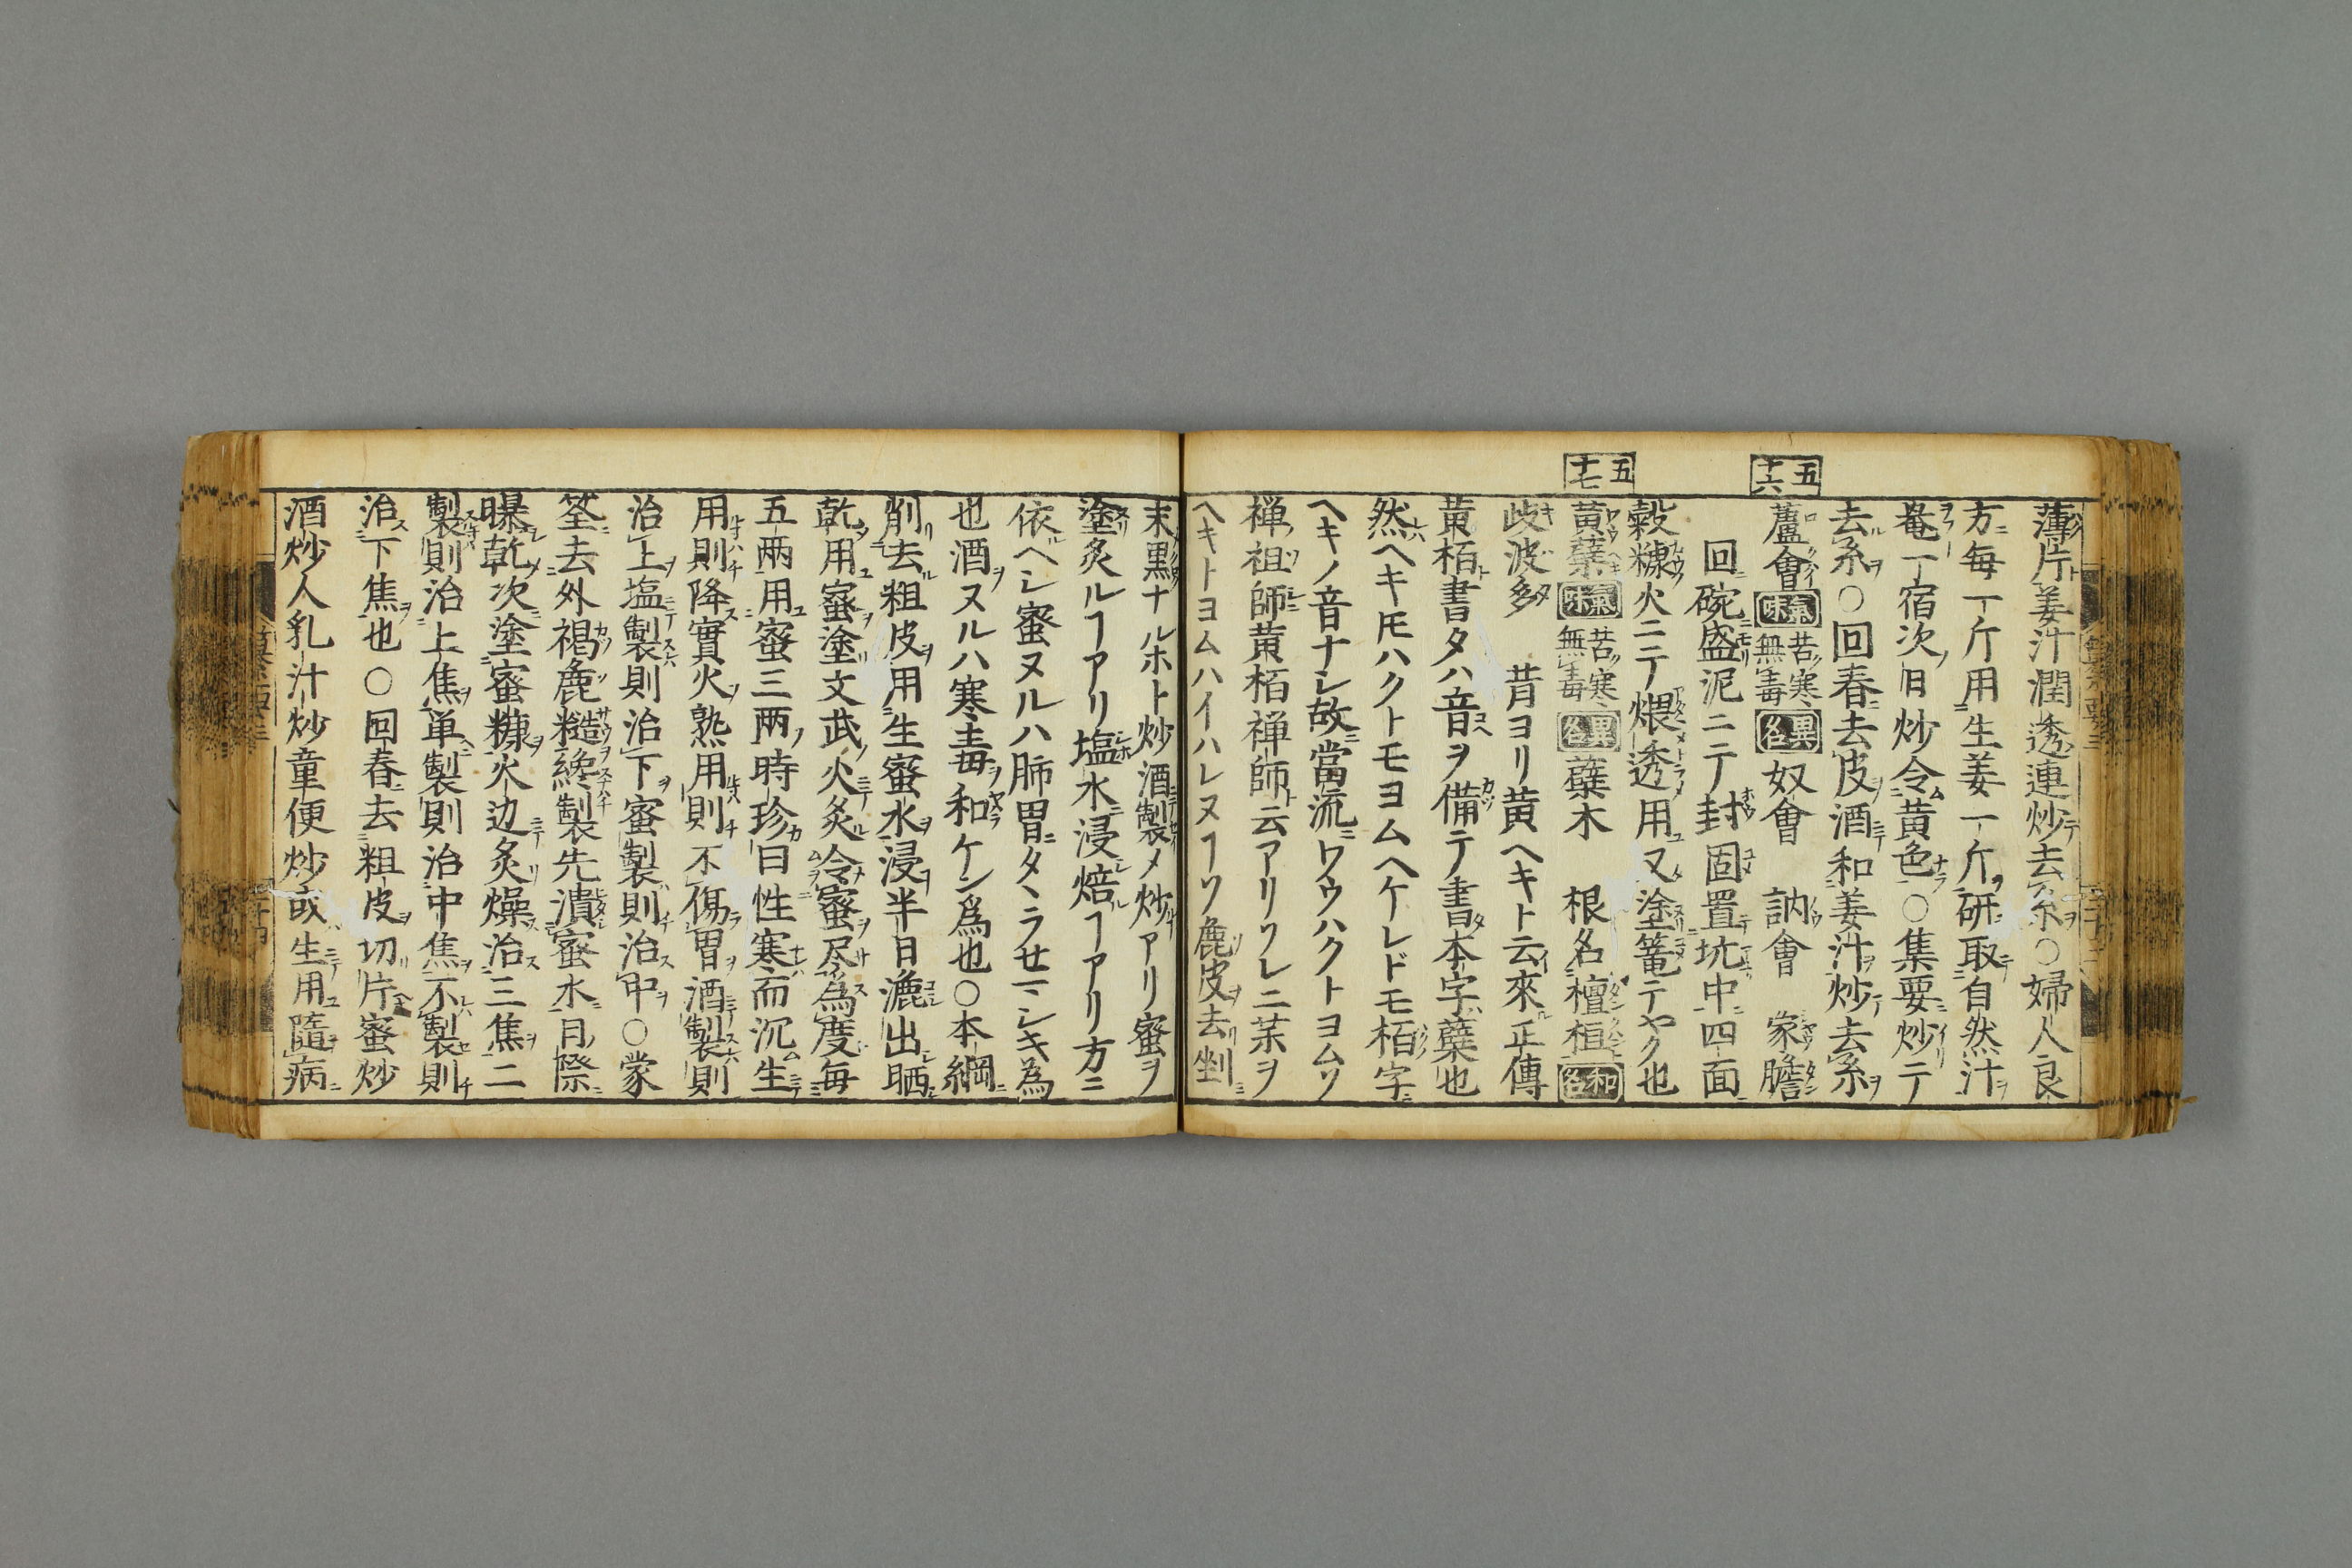 薄片姜汁潤透連炒去糸○婦人良
方毎一斤用生姜一斤研取自然汁
罨一宿次日炒令黄色○集要炒テ
去糸○回春去皮酒和姜汁炒去糸
五十六
蘆會 氣味 苦寒無毒 異名 奴會 訥會 家膽
回碗盛泥ニテ封固置坑中四面
穀糠火ニテ煨透用又塗篭テヤク也
五十七
黄蘗 氣味 苦寒無毒 異名 蘗木 根名檀桓 和名
岐波多 昔ヨリ黄ヘキト云來正傳
黄栢書タハ音ヲ備テ書本字蘗也
然ヘキトモハクトモヨムヘケレドモ栢字
ヘキノ音ナシ故當流ニワウハクトヨムソ
禅祖師黄栢禅師云アリソレニ茉ヲ
ヘキトヨムハイハレヌヿソ麁皮去剉
末黒ナルホト炒酒製メ炒アリ蜜ヲ
塗炙ルヿアリ塩水浸焙ヿアリ方ニ
依ヘシ蜜ヌルハ肺胃タヽラセマシキ為
也酒ヌルハ寒毒和ケン為也○本綱
削去粗皮用生蜜水浸半日漉出晒
乾用蜜塗文武火炙令蜜尽為度毎
五両用蜜三両時珍曰性寒而沉生
用則降實火熟用則不傷胃酒製則
治上塩製則治下蜜製則治中○蒙
筌去外褐麁糙纔製先漬蜜水日際
曝乾次塗蜜糠火边炙燥治三焦二
製則治上焦単製則治中焦不製則
治下焦也○回春去粗皮切片蜜炒
酒炒人乳汁炒童便炒或生用隨病